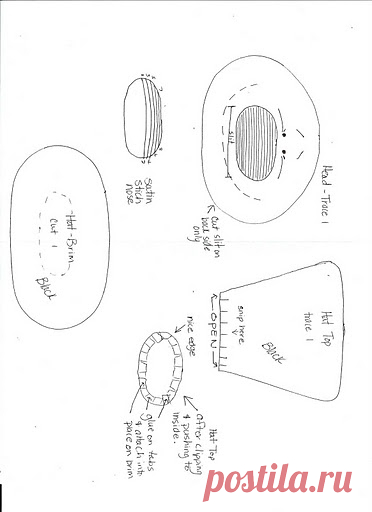 Head-Trace 1
slit
cut slit on
back side
only
satin
stich
nose
Hat-Brim
Cut 1
Black
Hat Top
trace 1
Black
snip here
OPEN
nice edge
Hat Top
after clipping
& pushing to
inside.
glue on tabs
& attach into
place on brim
postila.ru